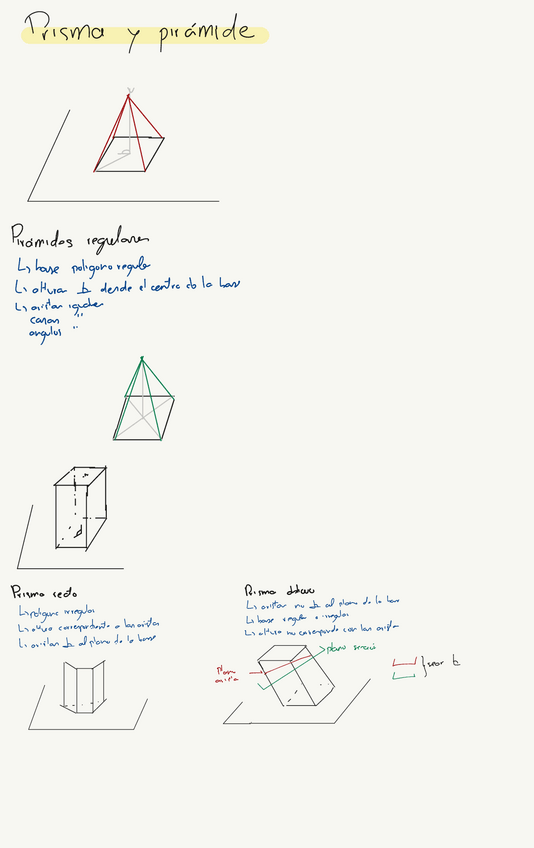 Prisma y pirámide
V
Pirámides regulares
↳ base polígono regular
↳ altura ⊥ desde el centro de la base
↳ aristas iguales
caras "
angulos "
Prisma recto
↳ polígono irregular
↳ altura correspondiente a las aristas
↳ aristas ⊥ al plano de la base
Prisma oblicuo
↳ aristas no ⊥ al plano de la base
↳ base regular o irregular
↳ altura no corresponde con las aristas
plano
plano
arista